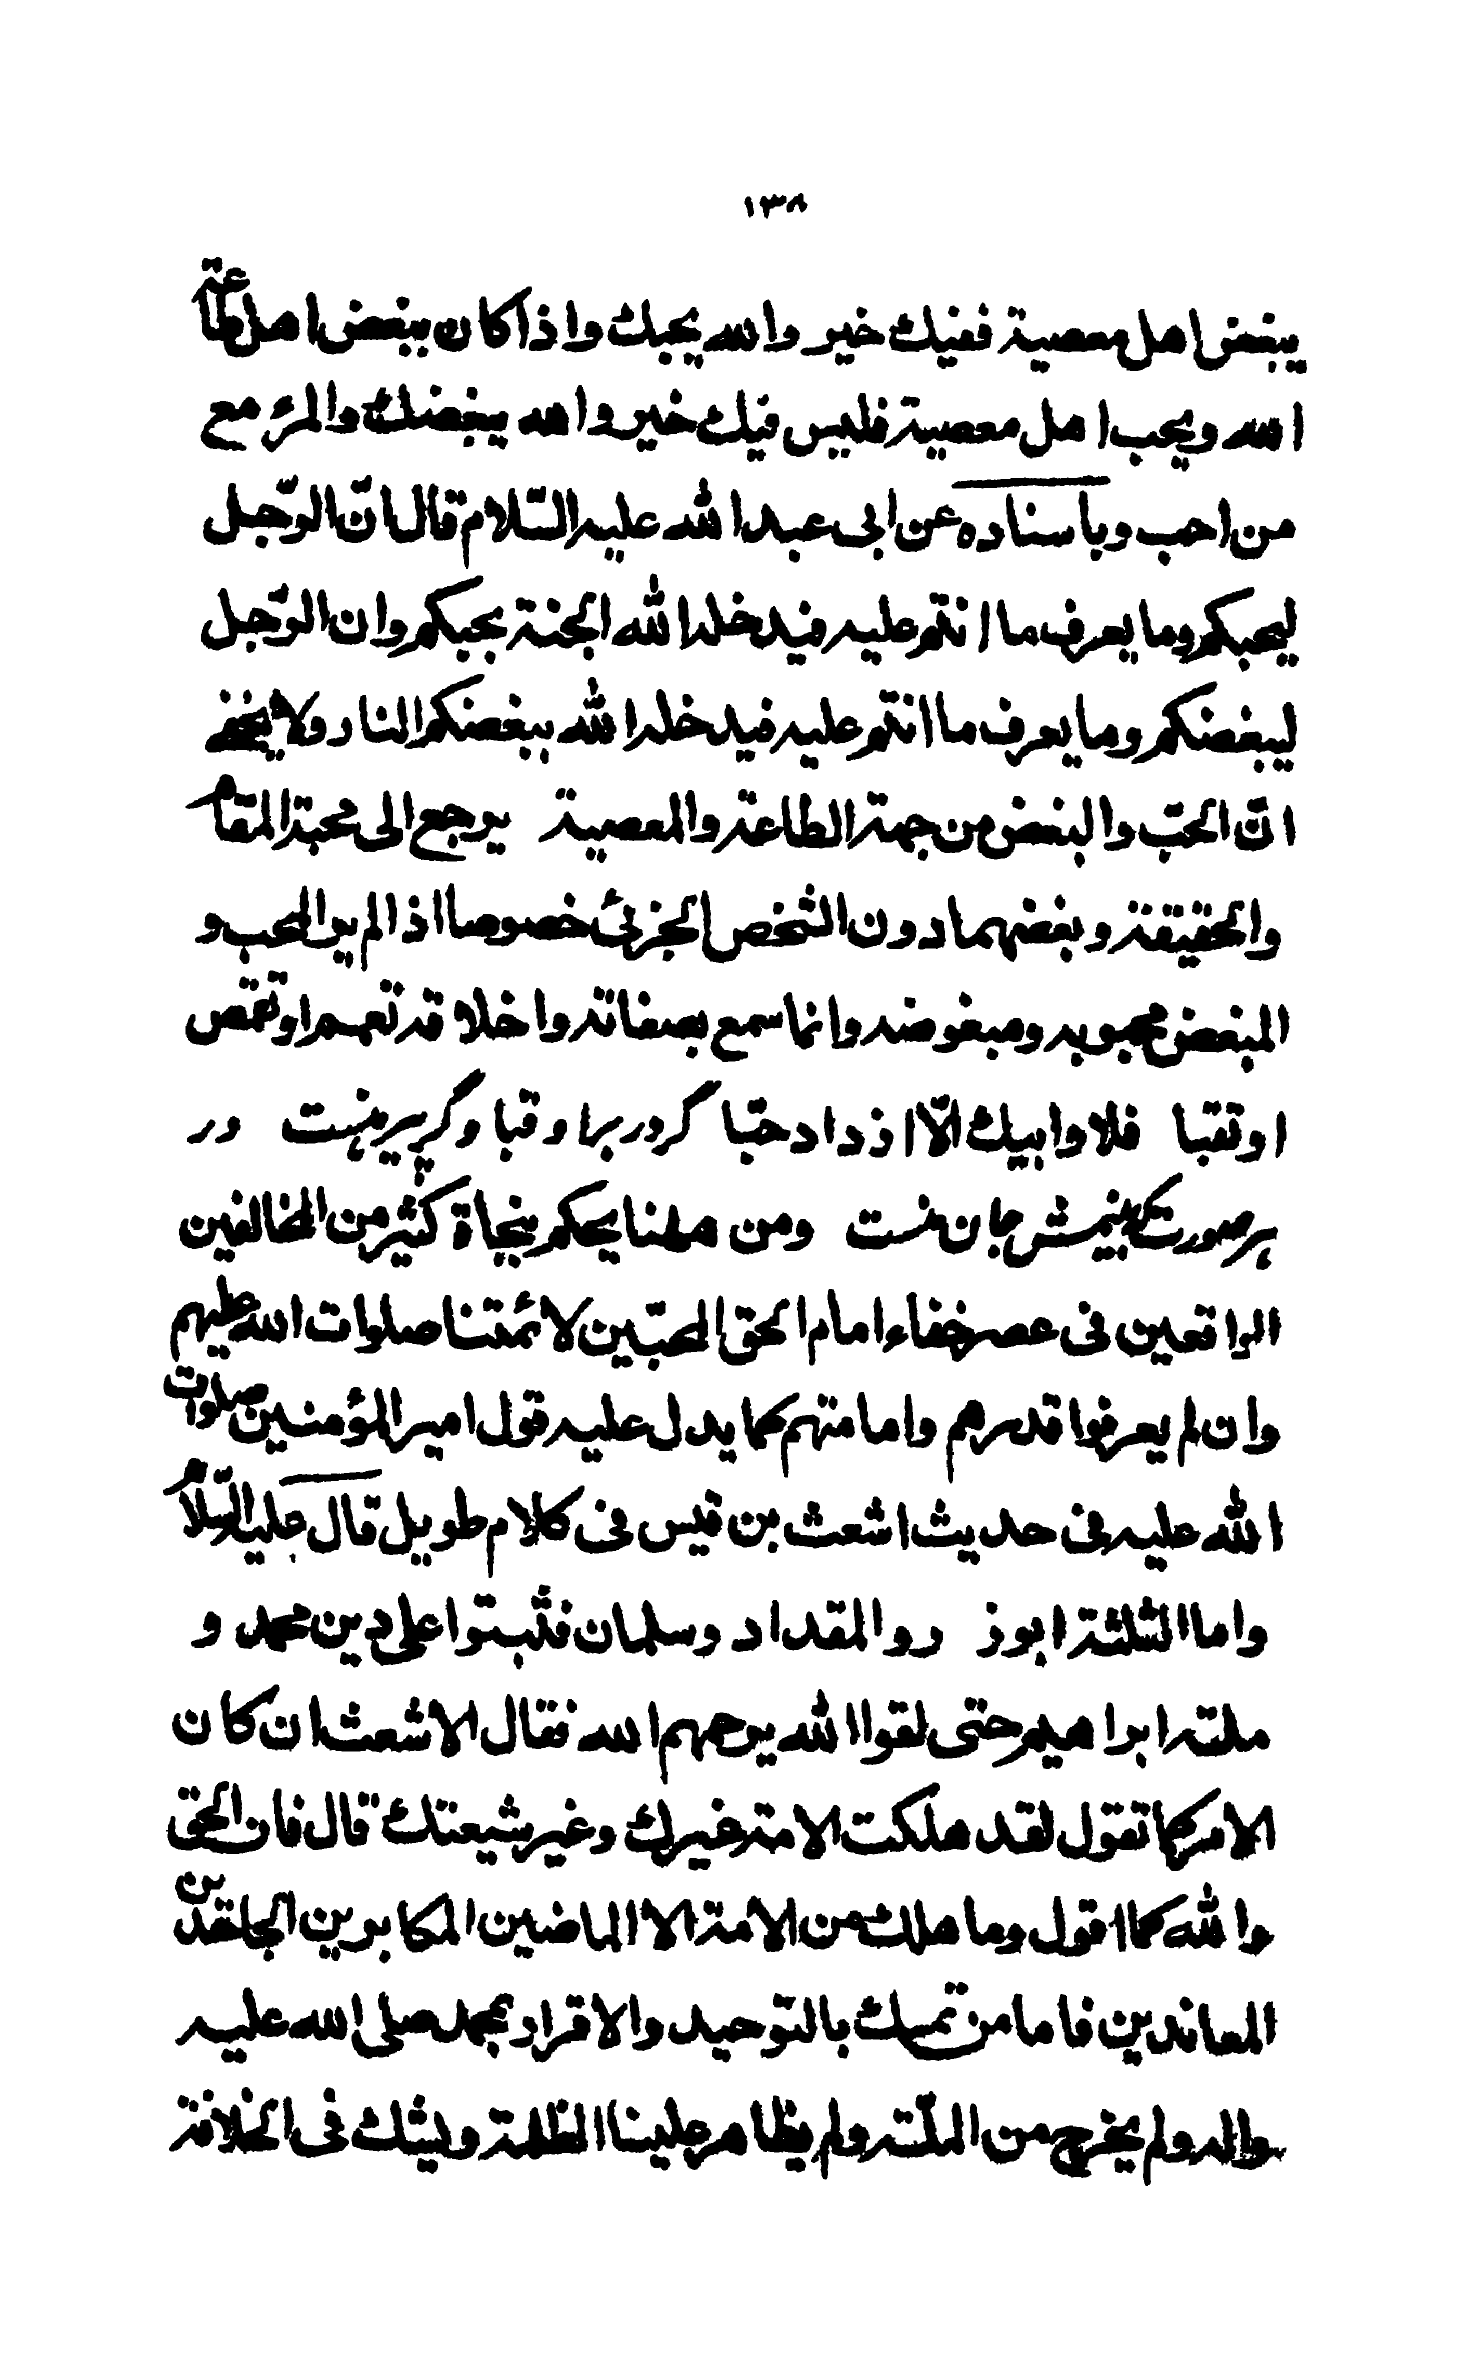 ١٣٨
يبغض اهل معصية ففيك خير والله يحبك واذا كان يبغض اهل طاعة
الله ويحب اهل معصية فليس فيك خير والله يبغضك والمرء مع
من احب وباسناده عن ابى عبد الله عليه السّلام قال انّ الرّجل
ليحبكم وما يعرف ما انتم عليه فيدخله الله الجنة بحبكم وان الرّجل
ليبغضكم وما يعرف ما انتم عليه فيدخله الله ببغضكم النار ولا يخفى
انّ الحبّ والبغض من جهة الطاعة والمعصية يرجع الى محبة المقام
والحقيقة وبغضهما دون الشخص الجزئى خصوصا اذا لم ير المحب و
المبغض محبوبه ومبغوضه وانما سمع بصفاته واخلاقه تعمم او تقمص
او تقبا فلا وابيك الّا ازداد حبّا گر در برا و قبا وگر پيرهنست ور
هر صورت كه بينمش جان منست ومن هلهنا يحكم بنجاة كثير من المخالفين
الواقعين فى عصر خفاء امام الحق المحبّين لائمتنا صلوات الله عليهم
وان لم يعرفوا قدرهم وامامتهم كما يدل عليه قول امير المؤمنين صلوات
الله عليه فى حديث اشعث بن قيس فى كلام طويل قال عليه السّلام
واما الثلثة ابوذ رو المقداد وسلمان فثبتوا على دين محمد و
ملته ابراهيم حتى لقوا الله يرحمهم الله فقال الاشعث ان كان
الامر كما تقول لقد هلكت الامة غيرك وغير شيعتك قال فان الحق
والله كما اقول وما هلك من الامة الا الماضين المكابرين الجاحدين
المعاندين فاما من تمسك بالتوحيد والاقرار بمحمد صلى الله عليه
واله ولم يخرج من الملّة ولم يظاهر علينا الظلمة وليشك فى الخلافة